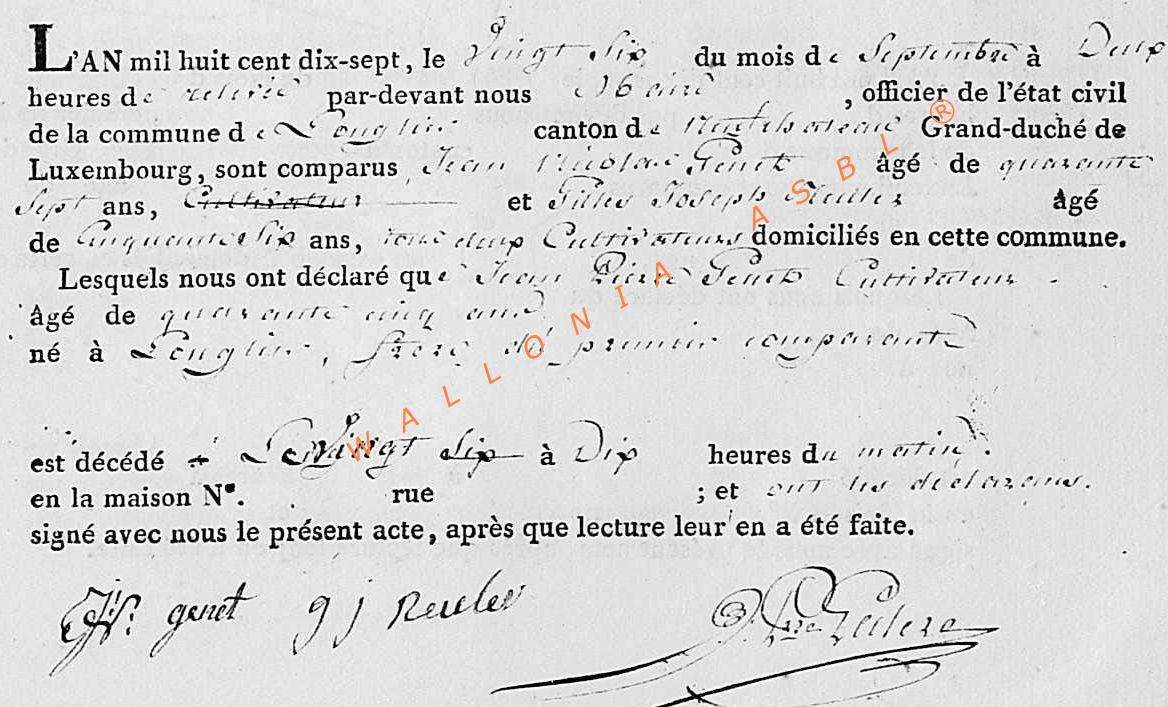 L'AN mil huit cent dix-sept, le Vingt Six du mois de Septembre à Deux
heures de relevée par-devant nous , officier de l'état civil
de la commune de Longlier canton de Neufchateau Grand-duché de
Luxembourg, sont comparus Jean Nicolas Genet âgé de quarante
Sept ans, Cultivateur et Gilles Joseph Reuler âgé
de Cinquante Six ans, tous deux Cultivateurs domiciliés en cette commune.
Lesquels nous ont déclaré que Jean Pierre Genet Cultivateur
âgé de quarante cinq ans
né à Longlier, frere du premier comparant
est décédé Le Vingt Six à Dix heures du matin.
en la maison N°. rue ; et ont les déclarans.
signé avec nous le présent acte, après que lecture leur en a été faite.
genet g j Reuler
WALLONIA ASBL ®